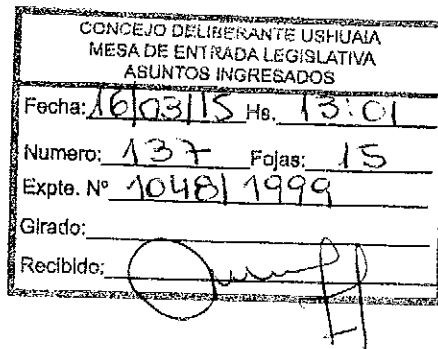 CONCEJO DELIBERANTE USHUAIA
MESA DE ENTRADA LEGISLATIVA
ASUNTOS INGRESADOS
Fecha: 16/03/15 Hs. 13:01
Numero: 137 Fojas: 15
Expte. Nº 1048/1999
Girado:
Recibido: